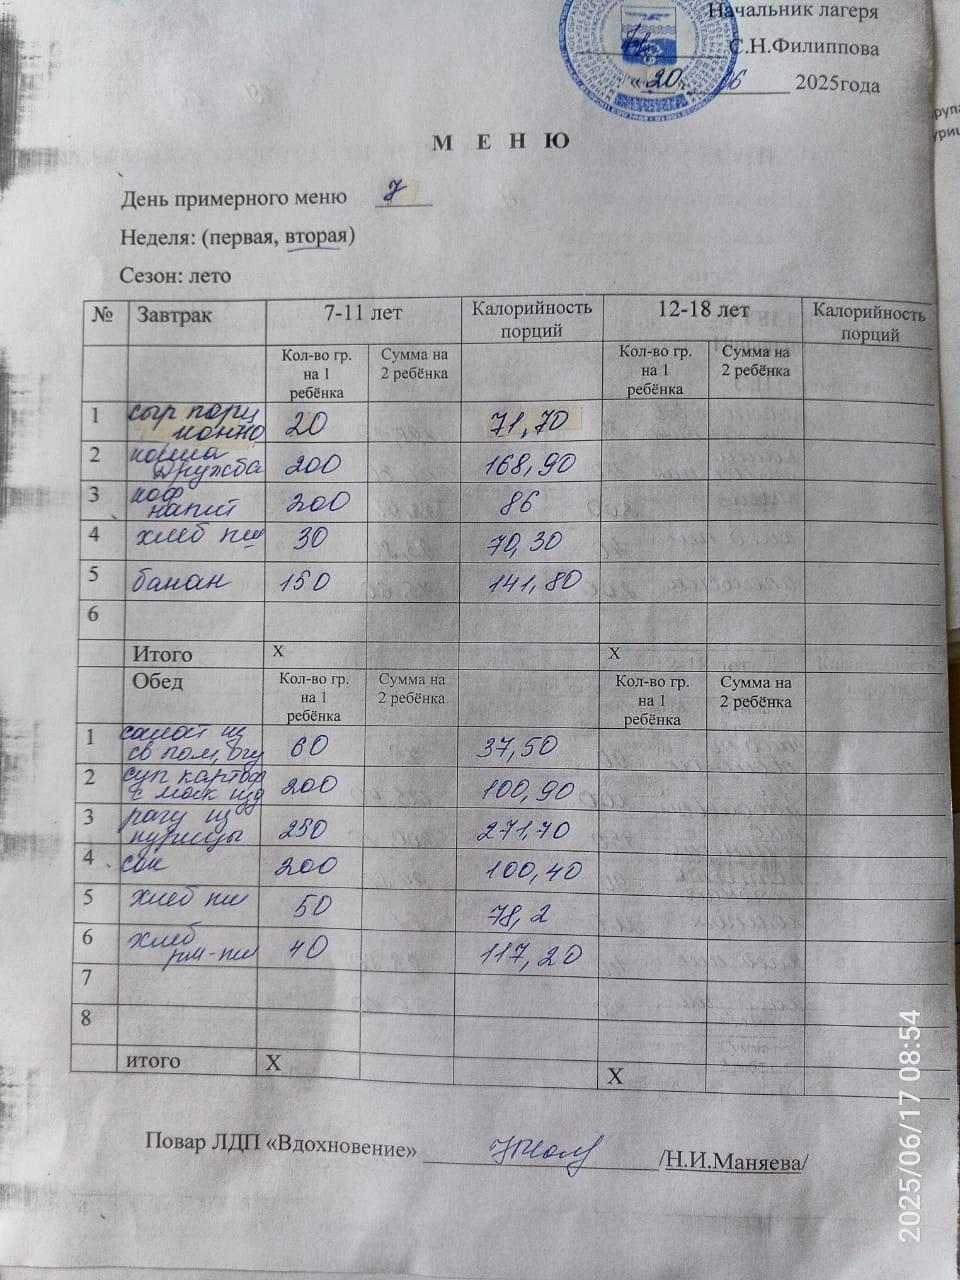 Начальник лагеря
С.Н.Филиппова
«20» 06 2025года
М Е Н Ю
День примерного меню 7
Неделя: (первая, вторая)
Сезон: лето
№ Завтрак 7-11 лет Калорийность порций 12-18 лет Калорийность порций
Кол-во гр. на 1 ребёнка Сумма на 2 ребёнка Кол-во гр. на 1 ребёнка Сумма на 2 ребёнка
1 сыр порционно 20 71,70
2 каша Дружба 200 168,90
3 коф напит 200 86
4 хлеб пш 30 70,30
5 банан 150 141,80
6
Итого Х Х
Обед Кол-во гр. на 1 ребёнка Сумма на 2 ребёнка Кол-во гр. на 1 ребёнка Сумма на 2 ребёнка
1 салат из св пом, огу 60 37,50
2 суп картоф с мак изд 200 100,90
3 рагу из курицы 250 271,70
4 сок 200 100,40
5 хлеб пш 50 78,2
6 хлеб рж-пш 40 117,20
7
8
итого Х Х
Повар ЛДП «Вдохновение» /Н.И.Маняева/
2025/06/17 08:54